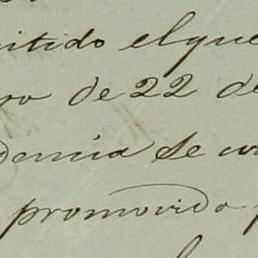 itido el que
ro de 22 de
demia se
promovido